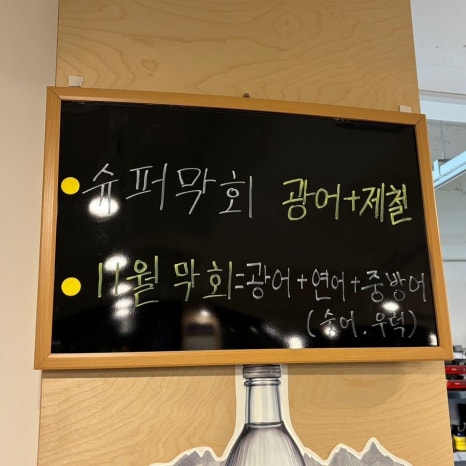 슈퍼막회 광어+제철
11월 막회=광어+연어+중방어
(숭어.우럭)